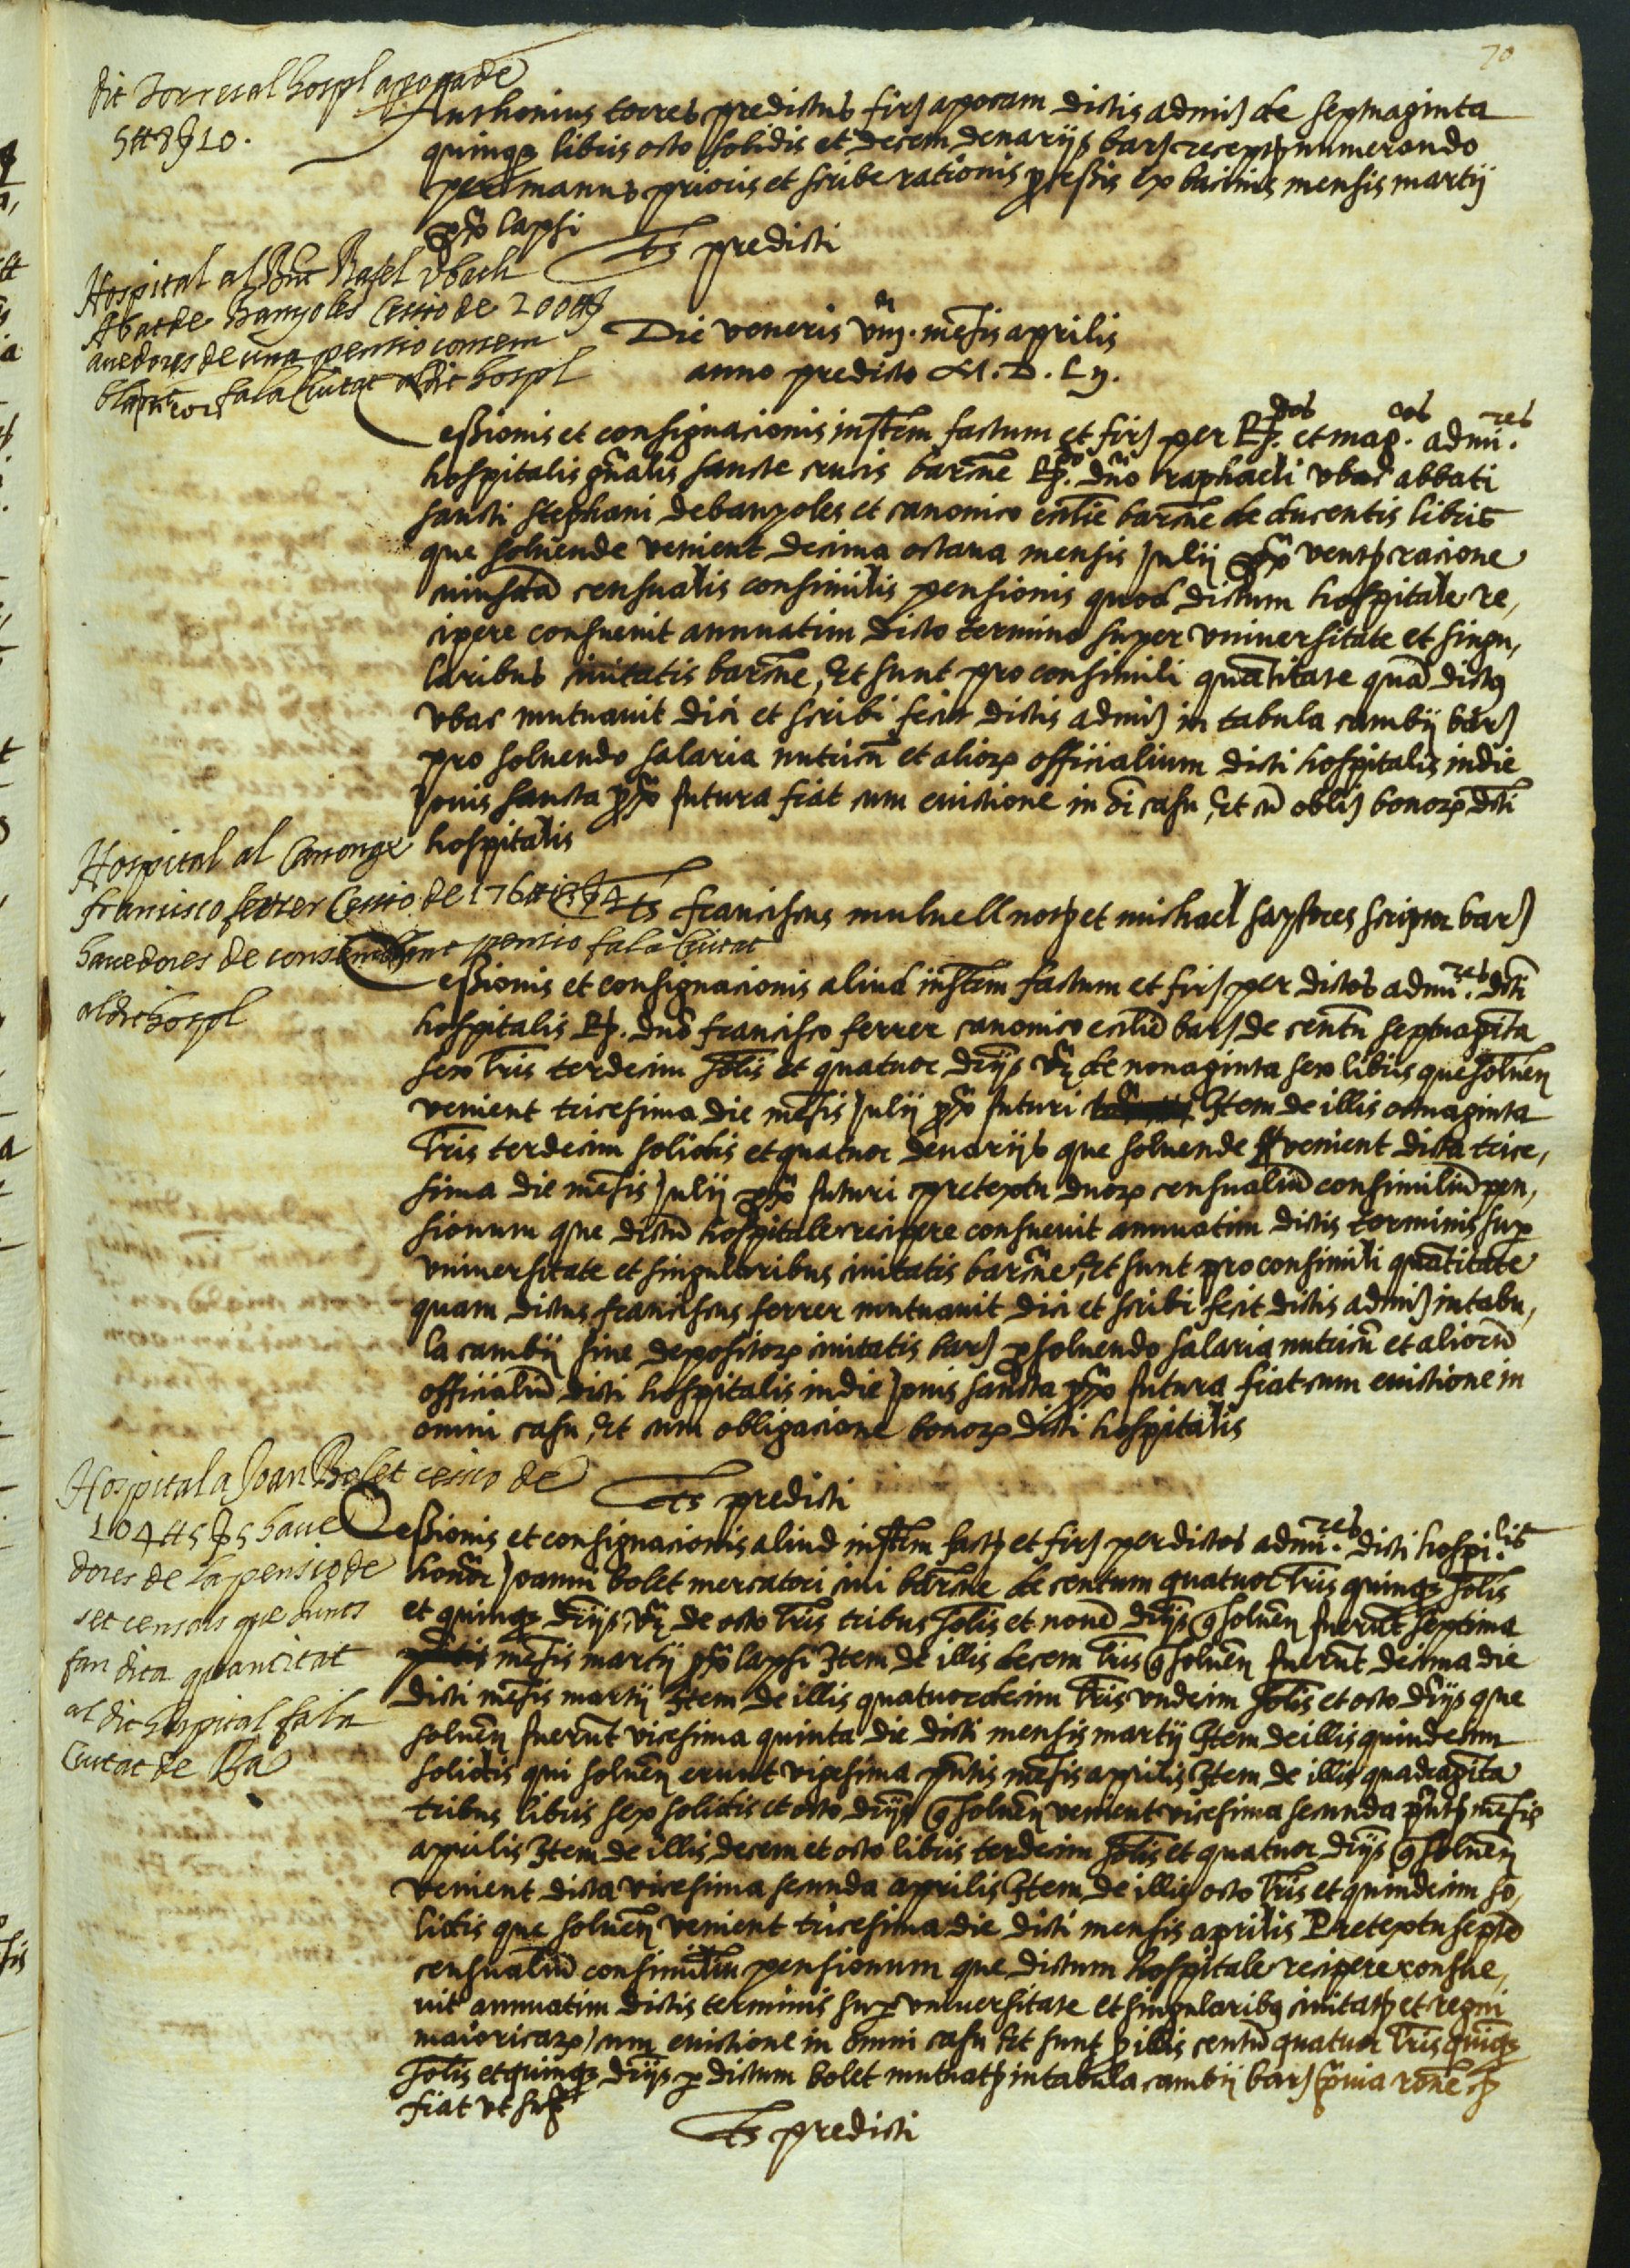 70
dit Torres al hospl apoqa de
5 ₶ 8 ß 10.
Anthonius torres predictus firȷ apocam dictis admiȷ de septuaginta
quinqȝ libris octo solidis et decem denarijs barȷ recept numerando
per manus prioris et scribe rationis ex bacinis mensis martij
pxo lapsi
Ts predicti
Hospital al Rnt Rafel Vbach
Abat de Banyoles Cessio de 200 ₶
auedores de una pensio consem
blant fa la Ciutat al dit hospl
Die veneris viij. mesis aprilis
anno predicto M. D. Lij.
Cessionis et consignacionis instem factum et firȷ per R.dos et mag.cos admi.res
hospitalis gnalis sancte crucis barcne R.do dno raphaeli vbac abbati
sancti stephani de banyoles et canonico ecclie barcne de ducentis libris
que soluende venient decima octaua mensis Julij pxo vent racione
cuiusdā censualis consimilis pensionis quod dictum hospitale re,
cipere consueuit annuatim dicto termino super vniuersitate et singu,
laribus ciuitatis barcne, Et sunt pro consimili quātitate quā dictȝ
vbac mutuauit dici et scribi fecit dictis admiȷ in tabula cambij barȷ
pro soluendo salaria nutricū et alioꝝ officialium dicti hospitalis in die
Jouis sancta pxo futura fiat cum euictione in oi casu, Et cū obliȷ bonoꝝ dcti
hospitalis
Hospital al Canonge
francisco ferrer Cessio de 176 ₶ 13 ß 4
hauedores de consemblant pensio fa la Ciutat
al dit hospl
Ts franciscus mulnell not et michael sastres scriptor barȷ
Cessionis et consignacionis aliud instem factum et firȷ per dictos admi.res dcti
hospitalis R. dno francisco ferrer canonico ecclie barȷ de centū septuagīta
sex lris terdecim solis et quatuor drijs vꝫ de nonaginta sex libris que soluen
venient tricesima die mesis Julij pxo futuri Item de illis octuaginta
lris terdecim solidis et quatuor denarijs que soluende venient dicta trice,
sima die mesis Julij pxo futuri pretextu duoꝝ censualiū consimiliū pen,
sionum que dictū hospitale recipere consueuit annuatim dictis terminis sup
vniuersitate et singularibus ciuitatis barcne, Et sunt pro consimili quātitate
quam dictus franciscus ferrer mutuauit dici et scribi fecit dictis admiȷ in tabu,
la cambij siue depositoꝝ ciuitatis barȷ p soluendo salaria nutricū et aliorū
officialiū dicti hospitalis in die Jouis sancta pxo futura fiat cum euictione in
omni casu, Et cum obligacione bonoꝝ dicti hospitalis
Ts predicti
Hospital a Joan Bolet cessio de
104 ₶ 5 ß 5 haue
dores de la pensio de
set censals que junts
fan dita quantitat
al dit hospital fa la
Ciutat de Ba
Cessionis et consignacionis aliud instem fact et firȷ per dictos admi.res dicti hospi.lis
honor Joanni bolet mercatori ciui barcne de centum quatuor lris quinqȝ solis
et quinqȝ drijs, vꝫ de octo lris tribus solis et nouē drijs q soluen fuerūt septima
mesis martij pxo lapsi Item de illis decem lris q soluen fuerūt decima die
dicti mesis martij Item de illis quatuordecim lris vndecim solis et octo drijs que
soluen fuerūt vicesima quinta die dicti mensis martij Item de illis quindecim
solidis qui soluen erunt vigesima pntis mesis aprilis Item de illis quadragīta
tribus libris sex solidis et octo drijs q soluen venient vicesima secunda pnt mesis
aprilis Item de illis decem et octo libris terdecim solis et quatuor drijs q soluen
venient dicta vicesima secunda aprilis Item de illis octo lris et quindecim so,
lidis que soluen venient tricesima die dicti mensis aprilis Pretextu septē
censualiū consimiliū pensionum que dictum hospitale recipere consue,
uit annuatim dictis terminis sup vniuersitate et singularibȝ ciuitat et regni
maioricaꝝ, cum euictione in omni casu Et sunt p illis centū quatuor lris quinqȝ
solis et quinqȝ drijs p dictum bolet mutuat in tabula cambij barȷ
fiat vt sup
Ts predicti